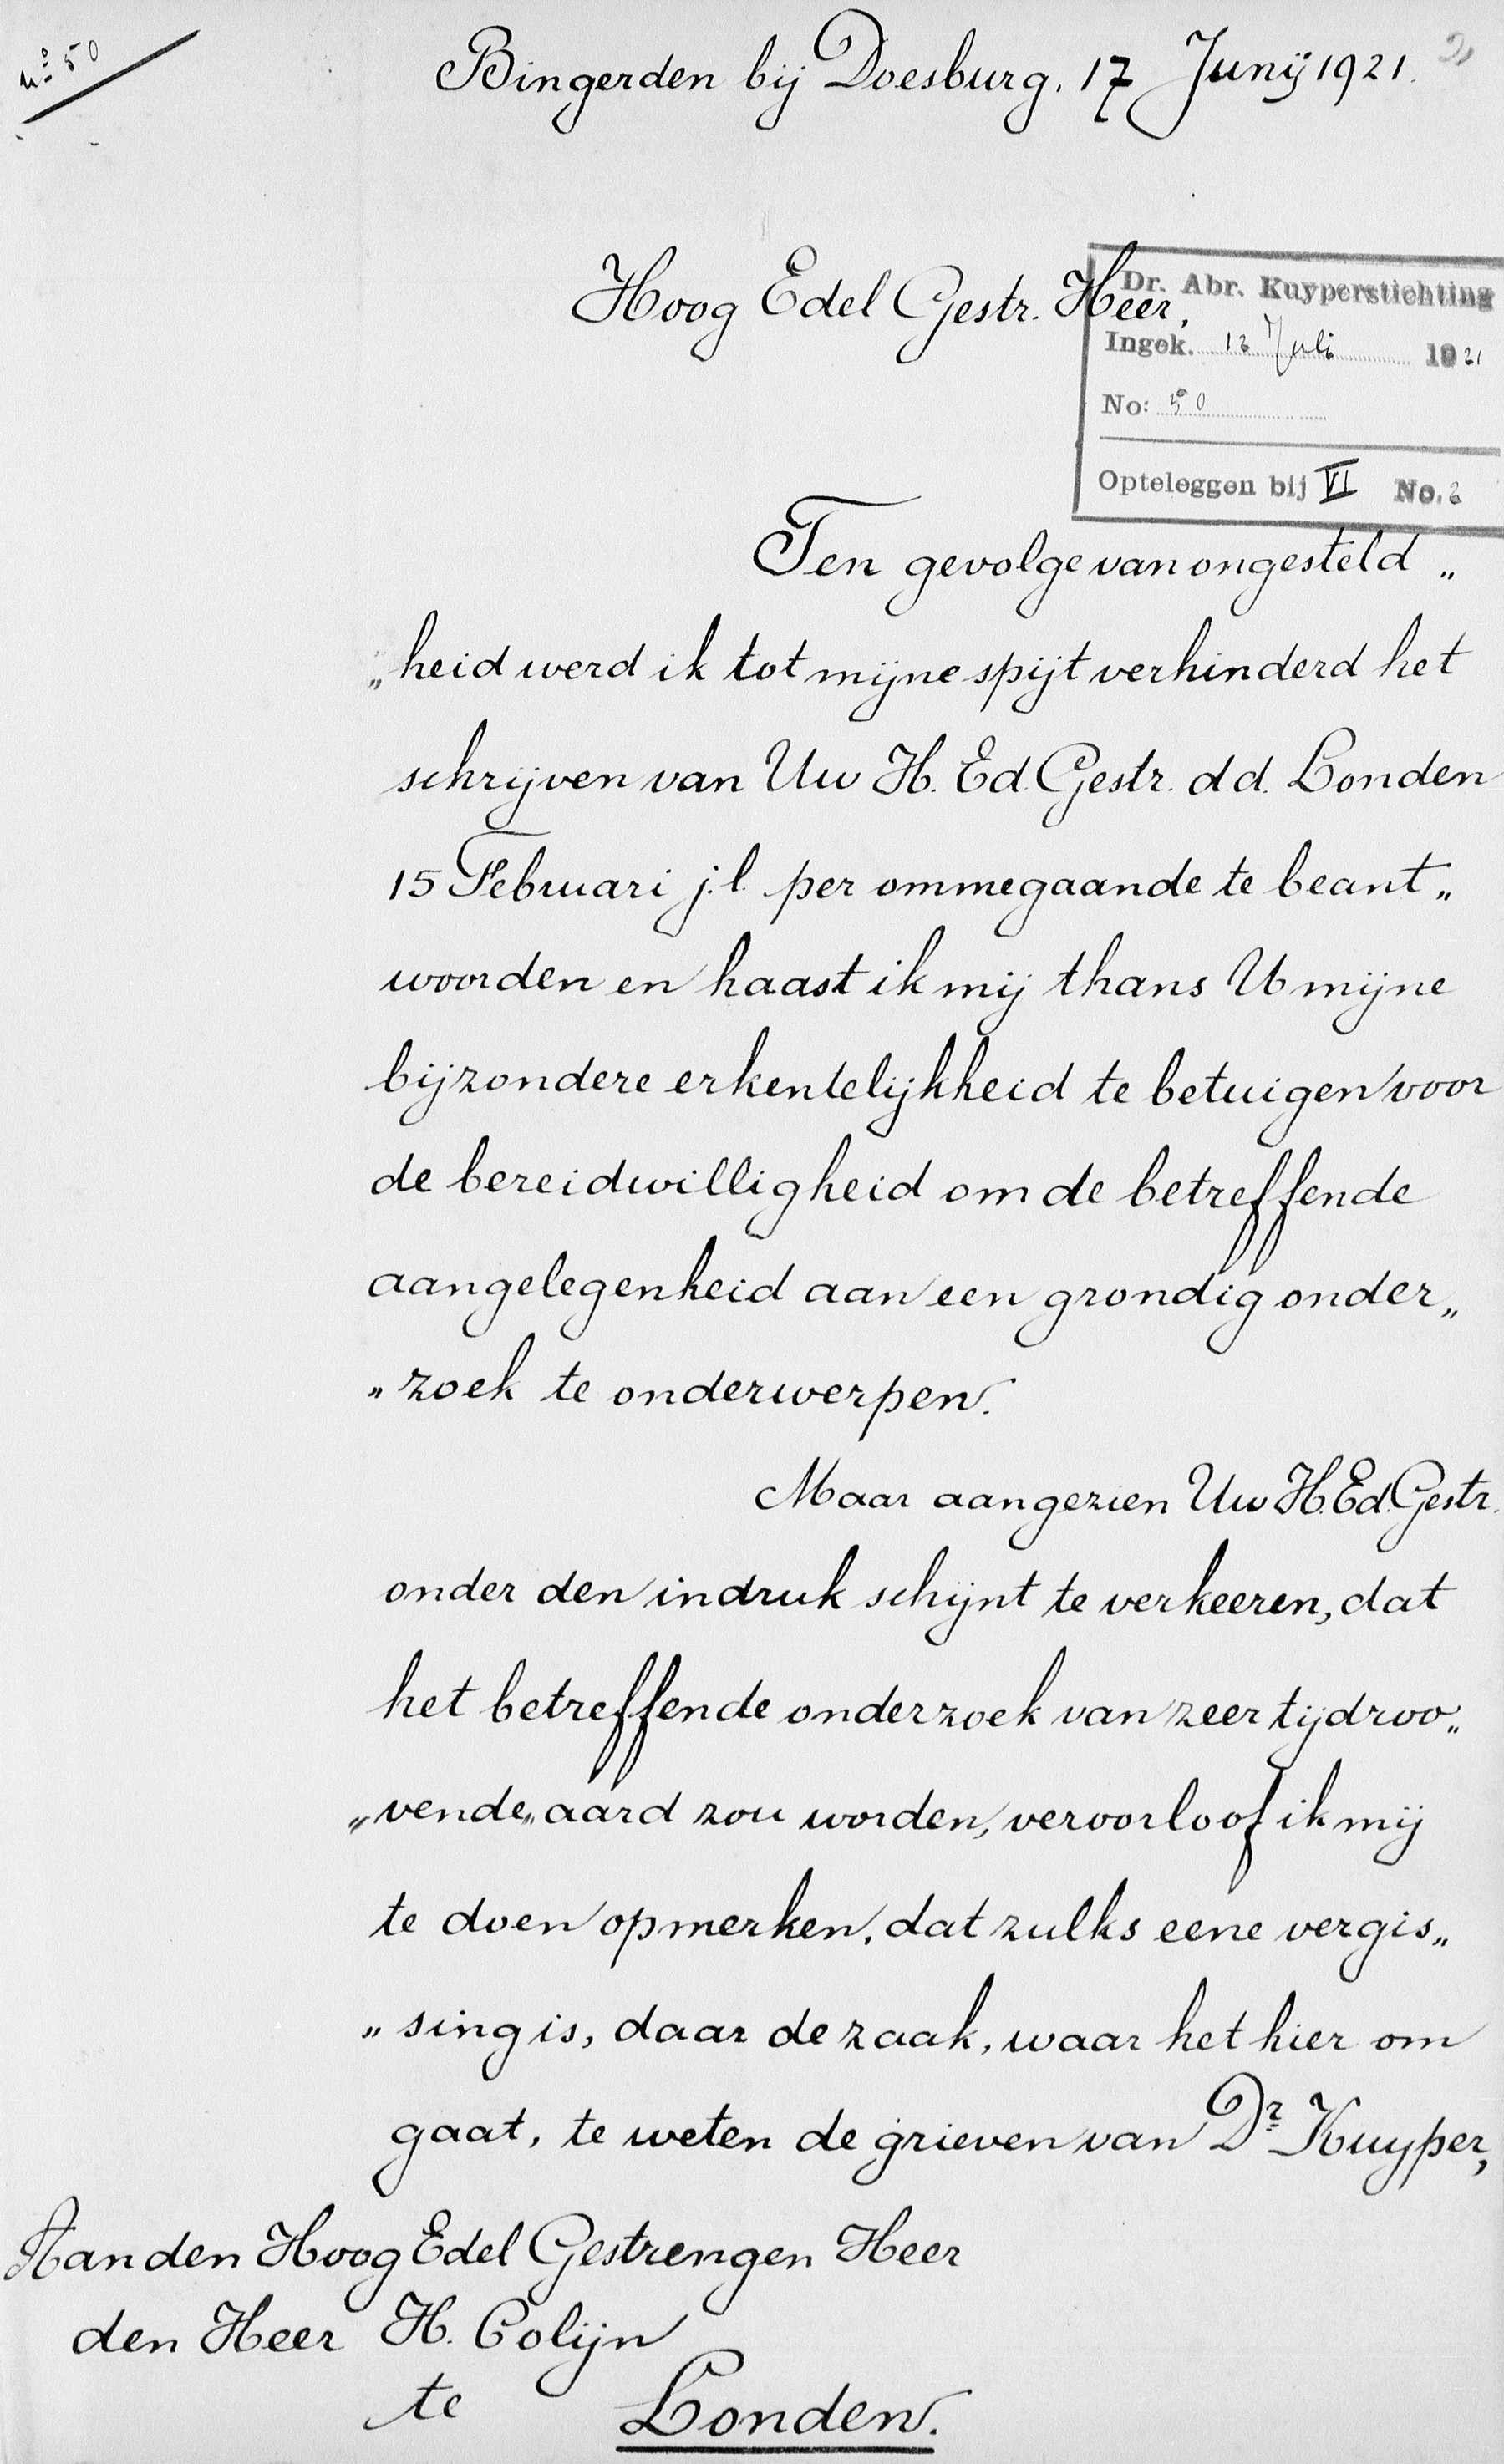 No 50
Bingerden bij Doesburg, 17 Junij 1921.
2
Hoog Edel Gestr. Heer,
Dr. Abr. Kuyperstichting
Ingek. 12 Juli 1921
No: 50
Opteleggen bij VI No. 2
Ten gevolge van ongesteld„
„heid werd ik tot mijne spijt verhinderd het
schrijven van Uw H. Ed. Gestr. dd. Londen
15 Februari j.l. per ommegaande te beant„
woorden en haast ik mij thans U mijne
bijzondere erkentelijkheid te betuigen voor
de bereidwilligheid om de betreffende
aangelegenheid aan een grondig onder„
„zoek te onderwerpen.
Maar aangezien Uw H. Ed. Gestr.
onder den indruk schijnt te verkeeren, dat
het betreffende onderzoek van zeer tijdroo„
„vende„ aard zou worden, veroorloof ik mij
te doen opmerken, dat zulks eene vergis„
„sing is, daar de zaak, waar het hier om
gaat, te weten de grieven van Dr Kuyper,
Aan den Hoog Edel Gestrengen Heer
den Heer H. Colijn
te Londen.